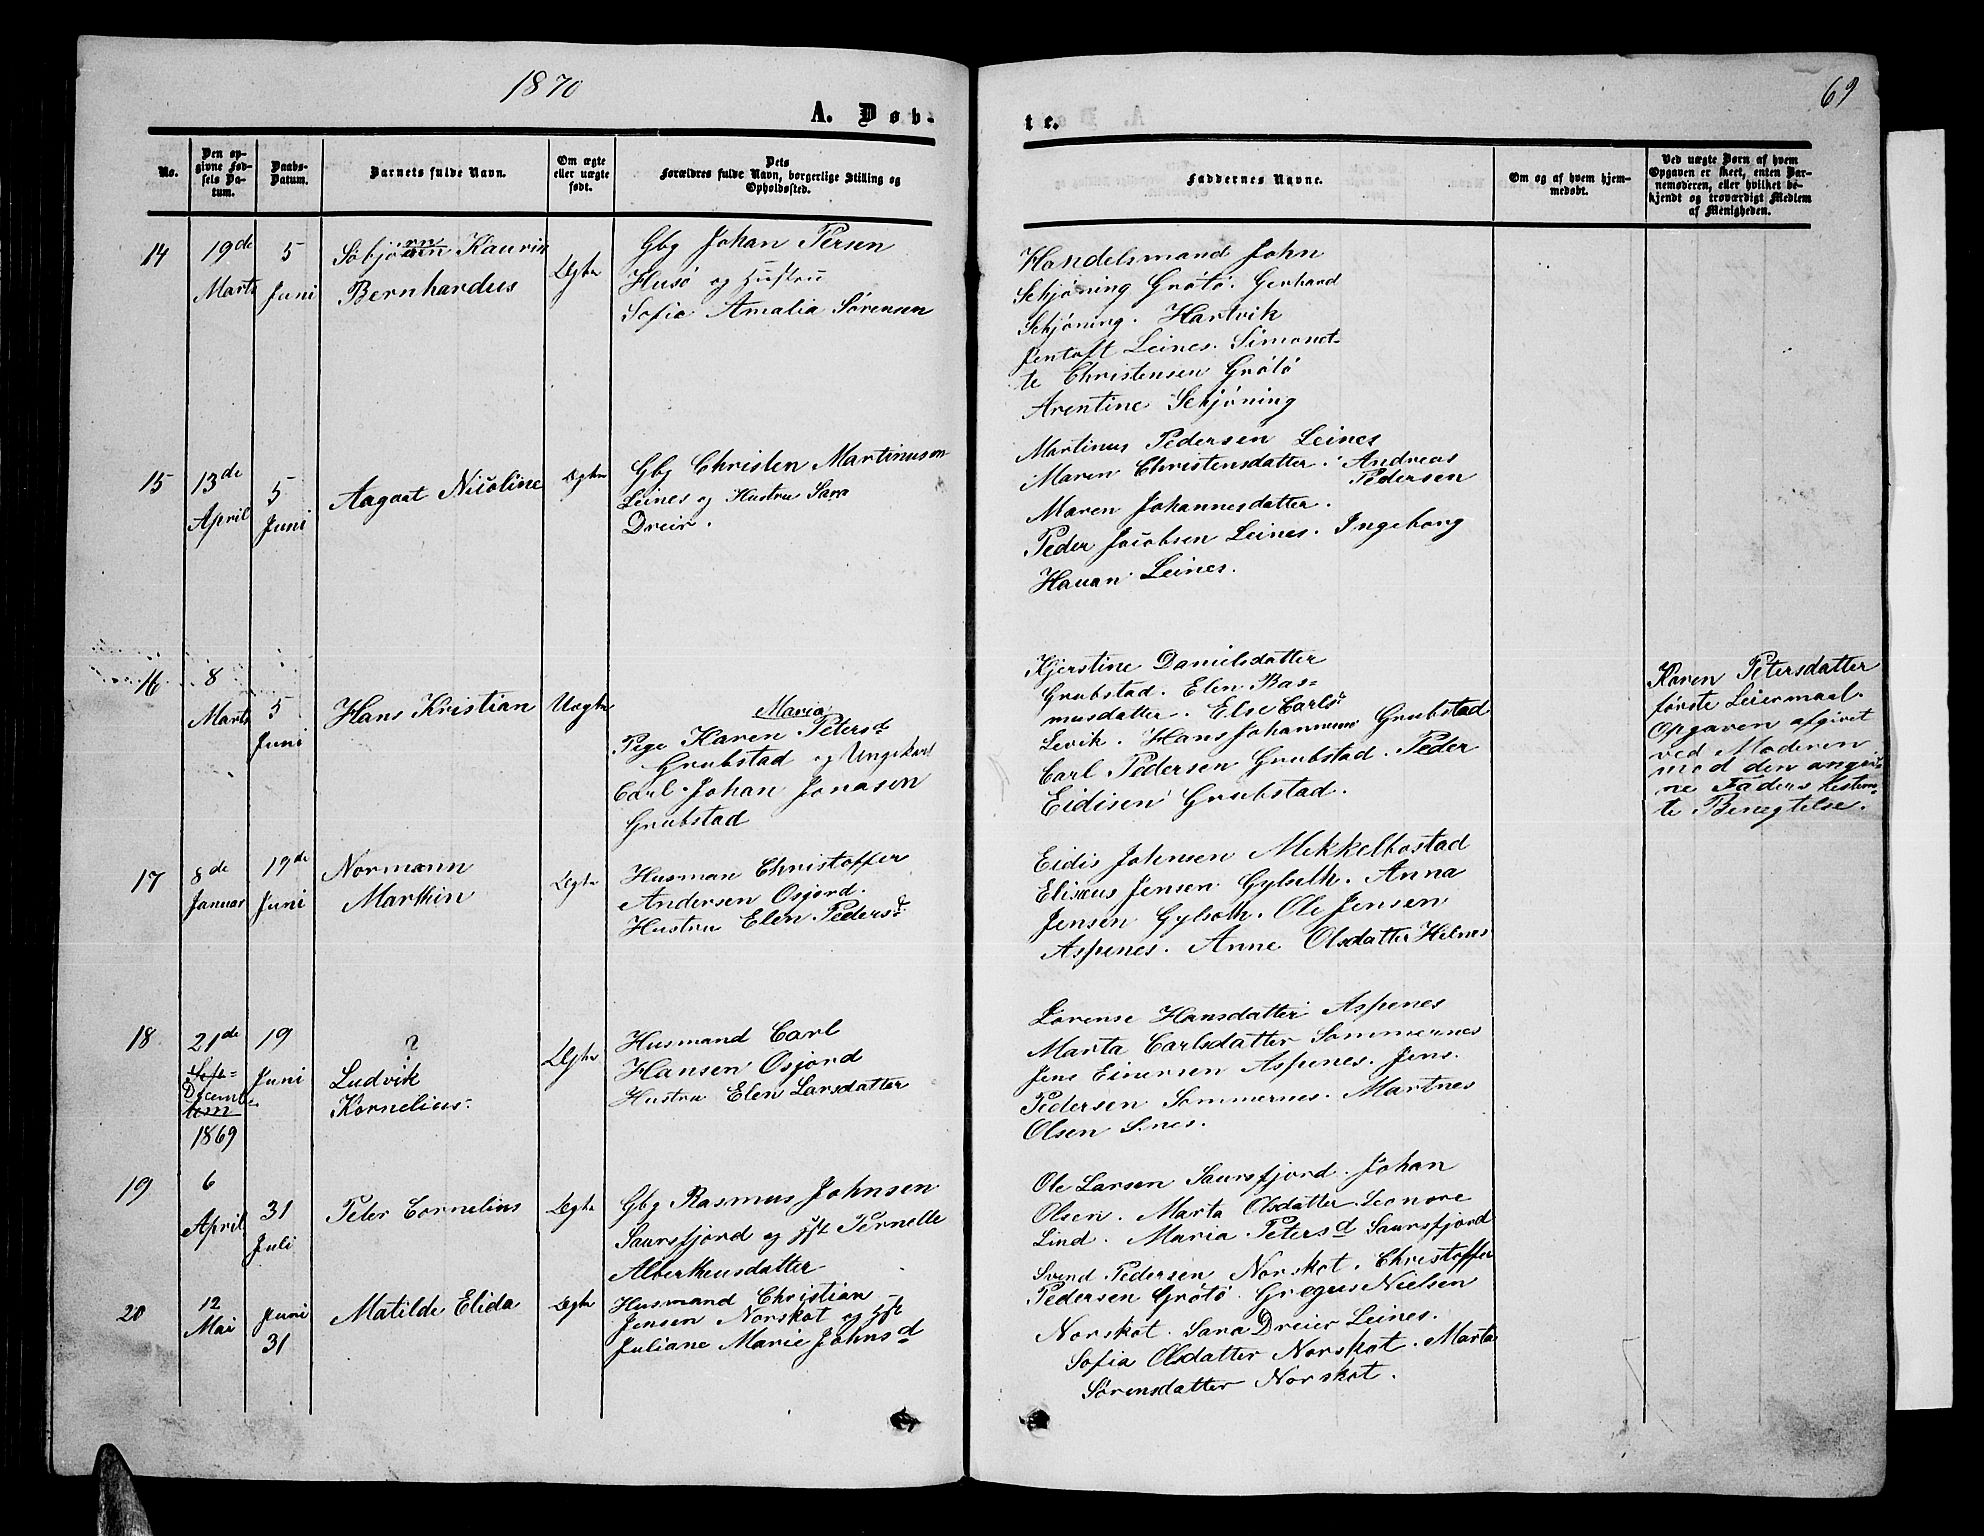 1870
69
A. Døb-
te.
No.
Den op-
givne Fød-
sels Da-
tum.
Daabs-
Datum.
Barnets fulde Navn.
Om ægte
eller uægte
født.
Dets
Forældres fulde Navn, borgerlige Stilling og
Opholdssted.
Faddernes Navne.
Om og af hvem hjem-
medøbt.
Ved uægte Børn af hvem
Opgaven er skeet, enten Bar-
nemoderen, eller hvilket be-
kjendt og troværdigt Medlem
af Menigheden.
14
19de
Marts
5
Juni
Kaurin
Bernhardus
Ægte
Gbg Johan Persen
Husø og Hustru
Sofie Amalia Sørensen
Handelsmand John
Schjøning Grøtø. Gerhard
Schjøning. Hartvik
Jentoft Leines. Simonet-
te Christensen Grøtø
Arentine Schjøning
15
13de
April
5
Juni
Aagaat Nicoline
Ægte
Gbg Christen Martinusen
Leines og Hustru Sara
Dreier.
Martinus Pedersen Leines
Maren Christensdatter. Andreas
Pedersen
Maren Johannesdatter.
Peder Jacobsen Leines. Ingeborg
Leines.
16
8
Marts
5
Juni
Hans Kristian
Uægte
Maria
Pige Karen Petersd
Grubstad og Ungekarl
Carl Johan Jonasen
Grubstad
Kjerstine Danielsdatter
Grubstad. Elen Ras-
musdatter. Else Carlsd
Levik. Hans Johannesen Grubstad
Carl Pedersen Grubstad. Peder
Eidisen Grubstad.
Karen Petersdatter
første Leiermaal.
Opgaven afgivet
ved Moderen
med den angiv-
ne Faders bestem-
te Benegtelse.
17
8de
Januar
19de
Juni
Normann
Marthin
Ægte
Husman Christoffer
Andersen Osjord.
Hustru Elen Pedersd
Eidis Johnsen Mikkelbostad
Elisæus Jensen Gylseth. Anna
Jensen Gylseth. Ole Jensen
Aspenes. Anne Olsdatter Helnes
18
21de
Sept-
Decemb-
1869
19
Juni
?
Ludvik
Kornelius.
Ægte
Husmand Carl
Hansen Osjord
Hustru Elen Larsdatter
Lorense Hansdatter Aspenes
Marta Carlsdatter Sommernes
Jens Einersen Aspenes. Jens
Pedersen Sommernes. Martnes
Olsen
19
6
April
31
Juli
Peter Cornelius
Ægte
Gbg Rasmus Johnsen
Saursfjord og Hst Pernelle
Albertheusdatter
Ole Larsen Saursfjord. Johan
Olsen. Marta Olsdatter. Leonore
Lind. Maria Petersd Saursfjord
20
12
Mai
Juni
31
Matilde Elida
Ægte
Husmand Christian
Jensen Norskot og Hst
Juliane Marie Johnsd
Svend Pedersen Norskot. Christoffer
Pedersen Grøtø. Gregus Nielsen
Norskot. Sara Dreier Leines.
Sofia Olsdatter Norskot. Marta
Sørensdatter Norskot.